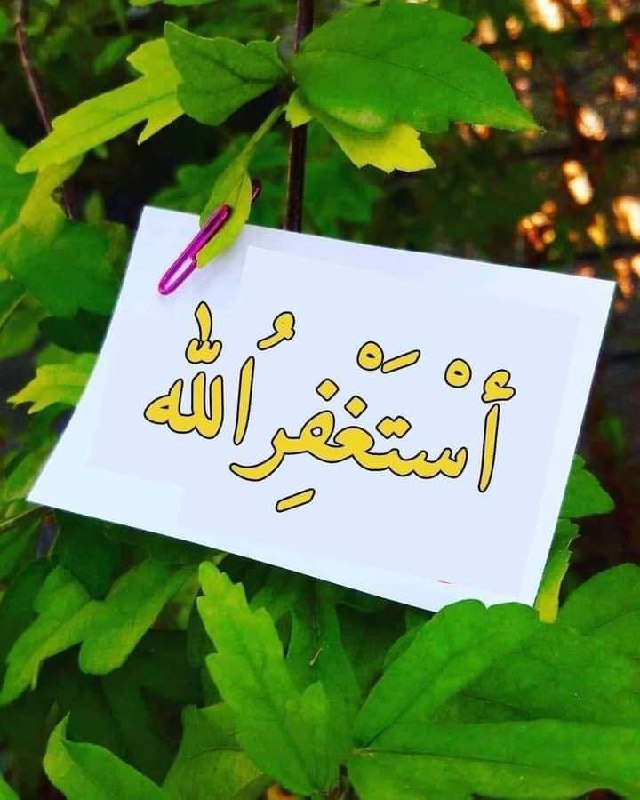 أَسْتَغْفِرُ الله